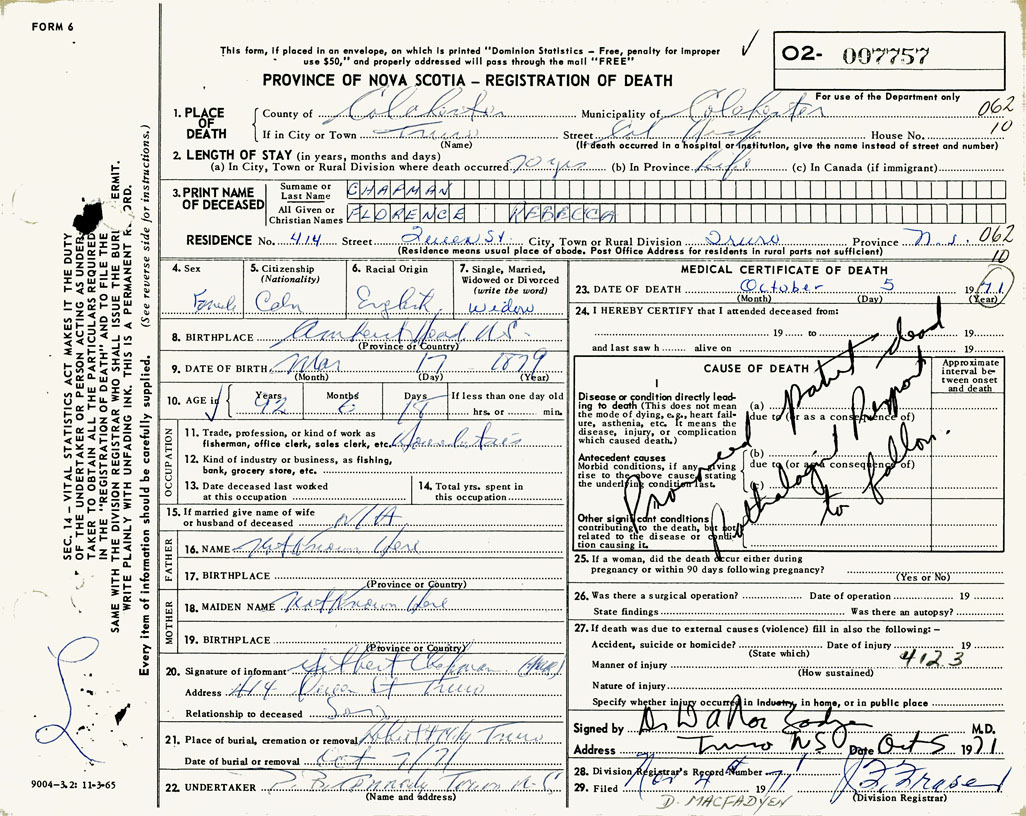 FORM 6
This form, if placed in an envelope, on which is printed "Dominion Statistics – Free, penalty for improper
use $50," and properly addressed will pass through the mail "FREE"
O2- 007757
PROVINCE OF NOVA SCOTIA – REGISTRATION OF DEATH
For use of the Department only
1. PLACE OF DEATH County of Colchester Municipality of Colchester 062
If in City or Town Truro Street Col Hosp House No. 10
(Name) (If death occurred in a hospital or institution, give the name instead of street and number)
2. LENGTH OF STAY (in years, months and days)
(a) In City, Town or Rural Division where death occurred 70 yrs (b) In Province Life (c) In Canada (if immigrant)
3. PRINT NAME OF DECEASED
Surname or Last Name CHAPMAN
All Given or Christian Names FLORENCE REBECCA
RESIDENCE No. 414 Street Queen St. City, Town or Rural Division Truro Province N.S. 062
(Residence means usual place of abode. Post Office Address for residents in rural parts not sufficient) 10
4. Sex Female
5. Citizenship (Nationality) Cdn
6. Racial Origin English
7. Single, Married, Widowed or Divorced (write the word) Widow
8. BIRTHPLACE Amherst Head N.S.
(Province or Country)
9. DATE OF BIRTH Mar 17 1879
(Month) (Day) (Year)
10. AGE in Years 92 Months 6 Days 18 If less than one day old
hrs. or min.
OCCUPATION
11. Trade, profession, or kind of work as
fisherman, office clerk, sales clerk, etc. Household duties
12. Kind of industry or business, as fishing,
bank, grocery store, etc.
13. Date deceased last worked
at this occupation
14. Total yrs. spent in
this occupation
15. If married give name of wife
or husband of deceased N/A
FATHER
16. NAME Not Known Here
17. BIRTHPLACE
(Province or Country)
MOTHER
18. MAIDEN NAME Not Known Here
19. BIRTHPLACE
(Province or Country)
20. Signature of informant Chapman
Address 414 Queen St Truro
Relationship to deceased Son
21. Place of burial, cremation or removal Truro
Date of burial or removal Oct 7/71
22. UNDERTAKER N.S.
(Name and address)
MEDICAL CERTIFICATE OF DEATH
23. DATE OF DEATH October 5 1971
(Month) (Day) (Year)
24. I HEREBY CERTIFY that I attended deceased from:
19 to 19
and last saw h alive on 19
CAUSE OF DEATH
Approximate interval between onset and death
I
Disease or condition directly leading to death (This does not
mean the mode of dying, e.g., heart failure, asthenia, etc. It means the
disease, injury, or complication
which caused death.)
(a)
due to (or as a consequence of)
Antecedent causes
Morbid conditions, if any, giving
rise to the above cause, stating
the underlying condition last.
(b)
due to (or as a consequence of)
(c)
Other significant conditions
contributing to the death, but not
related to the disease or condition causing it.
Pronounced patient dead
Pathologist Report
to follow.
25. If a woman, did the death occur either during
pregnancy or within 90 days following pregnancy?
(Yes or No)
26. Was there a surgical operation? Date of operation 19
State findings Was there an autopsy?
27. If death was due to external causes (violence) fill in also the following: –
Accident, suicide or homicide? Date of injury 19
(State which)
Manner of injury 4123
(How sustained)
Nature of injury
Specify whether injury occurred in industry, in home, or in public place
Signed by M.D.
Address Truro NS Date Oct 5 1971
28. Division Registrar's Record Number
29. Filed Nov 4 1971 J. Fraser
D. MACFADYEN (Division Registrar)
SEC. 14 – VITAL STATISTICS ACT MAKES IT THE DUTY
OF THE UNDERTAKER OR PERSON ACTING AS UNDER-
TAKER TO OBTAIN ALL THE PARTICULARS REQUIRED
IN THE "REGISTRATION OF DEATH" AND TO FILE THE
SAME WITH THE DIVISION REGISTRAR WHO SHALL ISSUE THE BURI ERMIT.
WRITE PLAINLY WITH UNFADING INK. THIS IS A PERMANENT R ORD.
Every item of information should be carefully supplied. (See reverse side for instructions.)
9004–3.2: 11-3-65